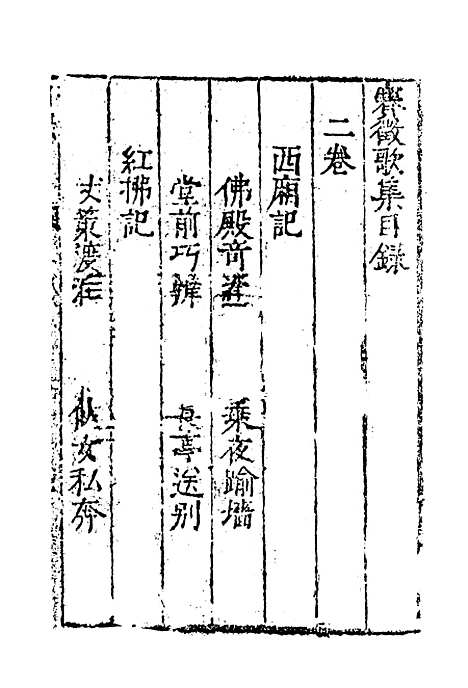 賽徵歌集目錄
二卷
西廂記
佛殿奇逢 乘夜踰墻
堂前巧辯 長亭送別
紅拂記
丈策渡江 俠女私奔